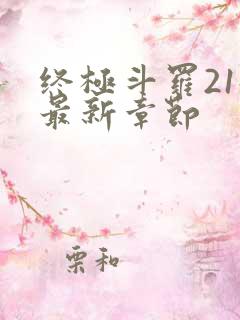 终极斗羅21
最新章節
栗和